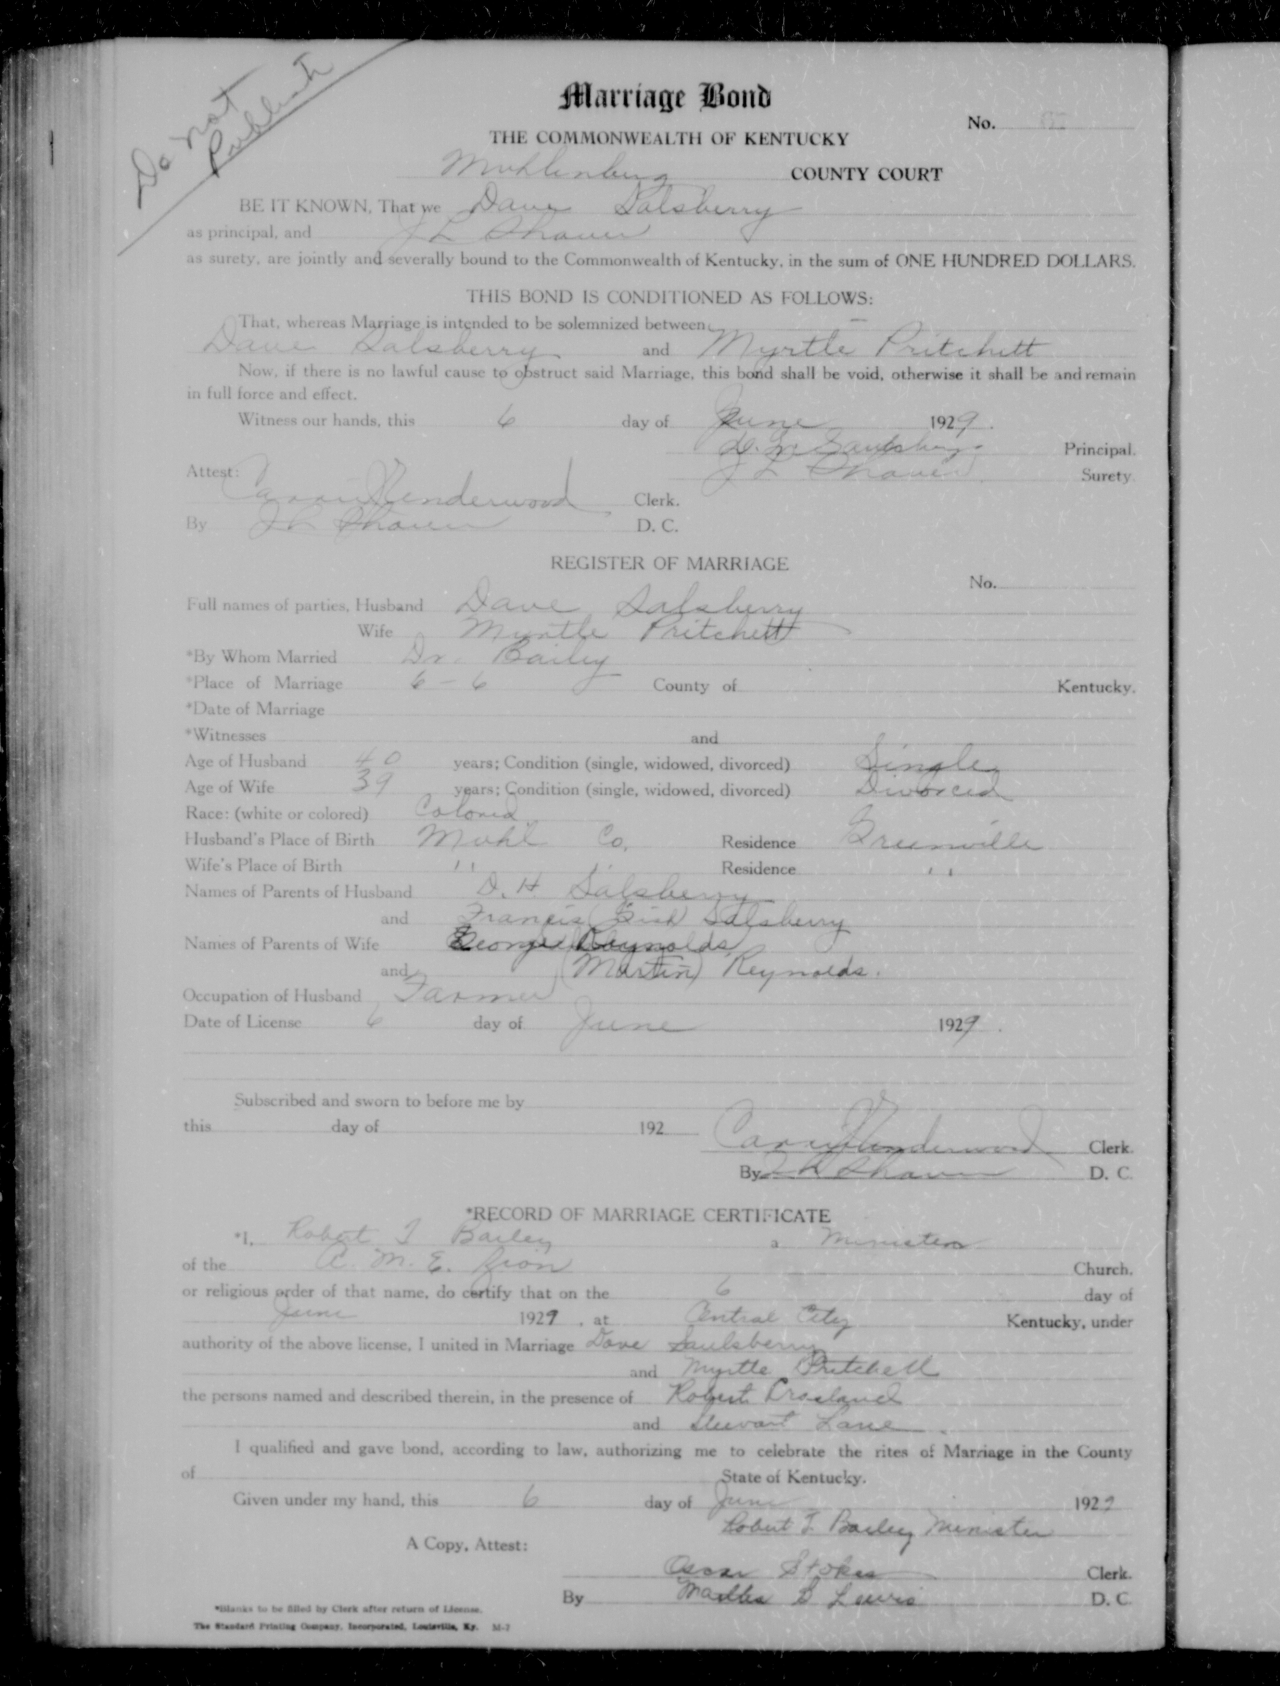 Do not
Publish
Marriage Bond
No.
THE COMMONWEALTH OF KENTUCKY
Muhlenberg COUNTY COURT
BE IT KNOWN, That we Dave Salsberry
as principal, and J L Shaver
as surety, are jointly and severally bound to the Commonwealth of Kentucky, in the sum of ONE HUNDRED DOLLARS.
THIS BOND IS CONDITIONED AS FOLLOWS:
That, whereas Marriage is intended to be solemnized between
Dave Salsberry and Myrtle Pritchett
Now, if there is no lawful cause to obstruct said Marriage, this bond shall be void, otherwise it shall be and remain
in full force and effect.
Witness our hands, this 6 day of June 1929.
Principal.
Attest: J L Shaver Surety
Underwood Clerk.
By J L Shaver D. C.
REGISTER OF MARRIAGE
No.
Full names of parties, Husband Dave Salsberry
Wife Myrtle Pritchett
*By Whom Married Dr. Bailey
*Place of Marriage 6 - 6 County of Kentucky.
*Date of Marriage
*Witnesses and
Age of Husband 40 years; Condition (single, widowed, divorced) Single
Age of Wife 39 years; Condition (single, widowed, divorced) Divorced
Race: (white or colored) Colored
Husband's Place of Birth Muhl Co. Residence Greenville
Wife's Place of Birth " Residence "
Names of Parents of Husband D. H. Salsberry
and Francis Salsberry
Names of Parents of Wife George Reynolds
and (Martin) Reynolds.
Occupation of Husband Farmer
Date of License 6 day of June 1929.
Subscribed and sworn to before me by
this day of 192
Underwood Clerk
By J L Shaver D. C.
*RECORD OF MARRIAGE CERTIFICATE
*I, Robert T Bailey a Minister
of the A. M. E. Zion Church.
or religious order of that name, do certify that on the 6 day of
June 1929, at Central City Kentucky, under
authority of the above license, I united in Marriage Dave Saulsberry
and Myrtle Pritchett
the persons named and described therein, in the presence of Robert
and Stewart Lane.
I qualified and gave bond, according to law, authorizing me to celebrate the rites of Marriage in the County
of State of Kentucky.
Given under my hand, this 6 day of June 1929
Robert T. Bailey Minister
A Copy, Attest:
Oscar Stokes Clerk.
By Lewis D. C.
*Blanks to be filled by Clerk after return of License.
The Standard Printing Company, Incorporated, Louisville, Ky. M-7